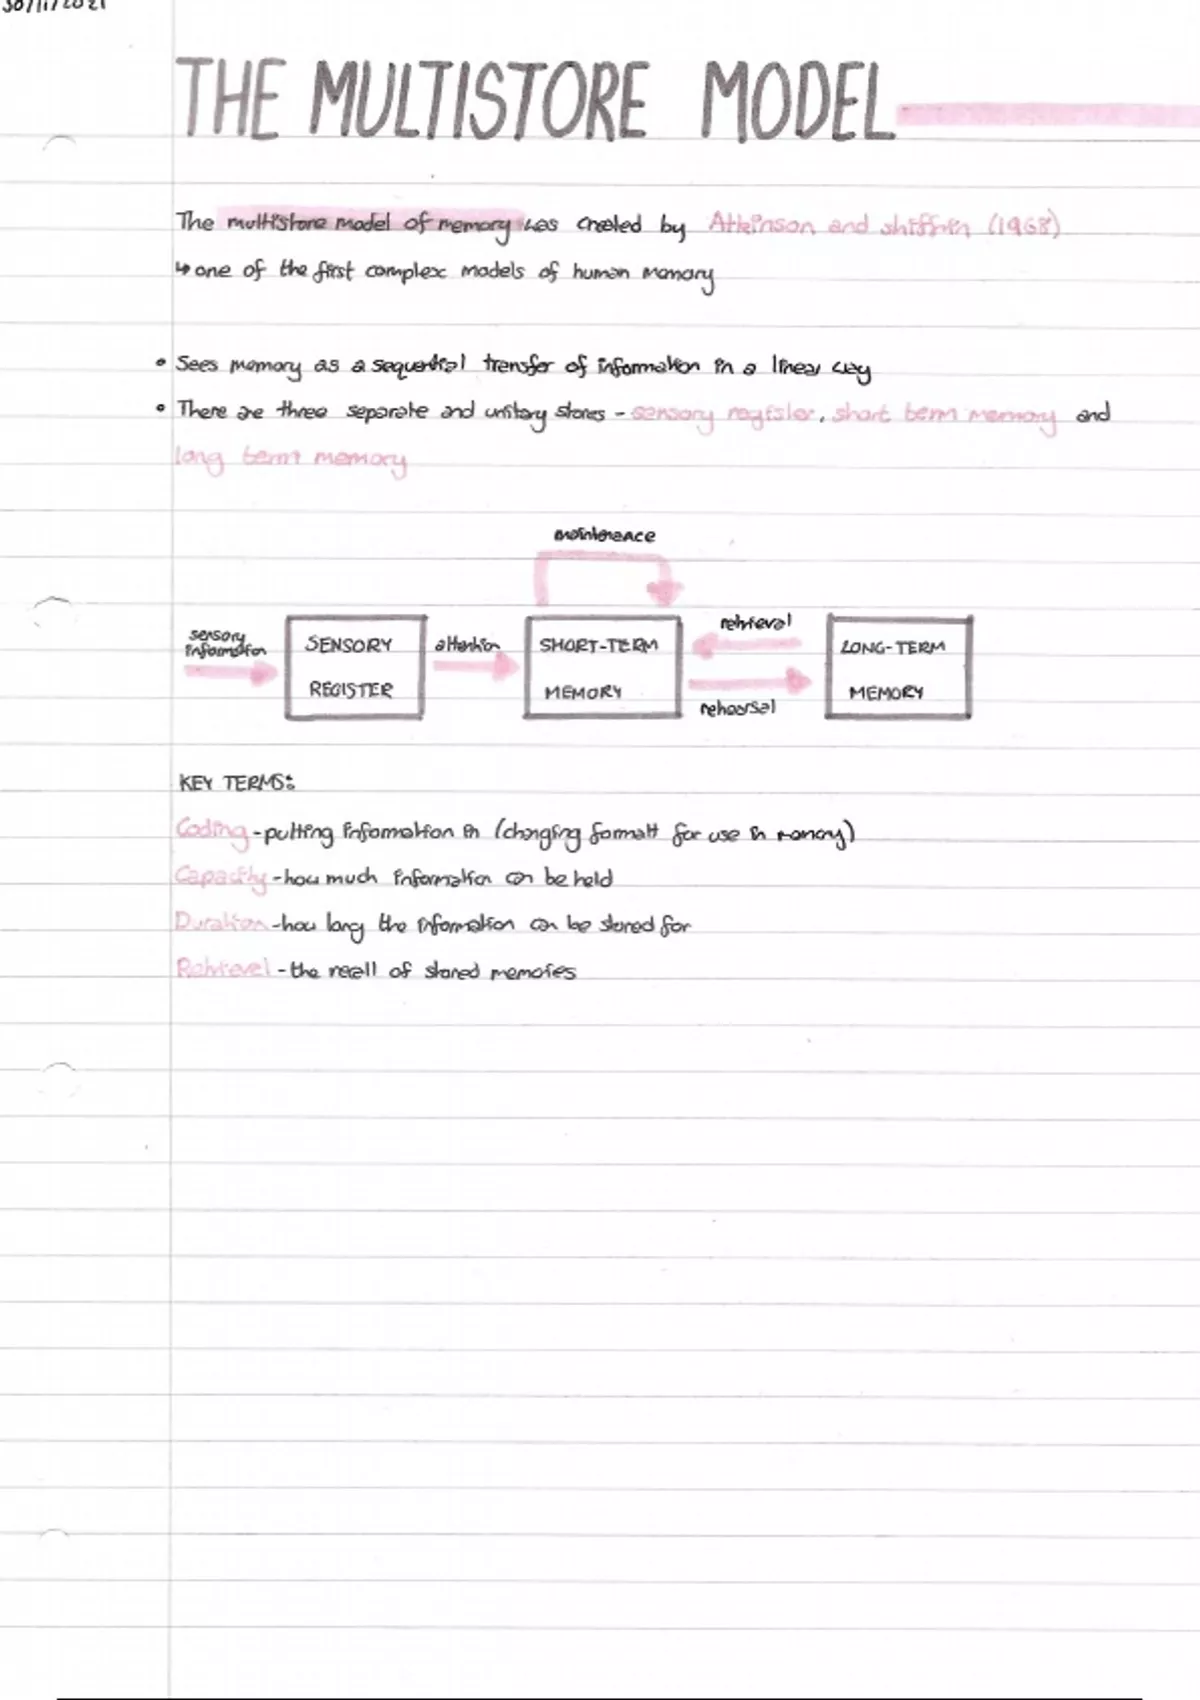 30/11/2021
THE MULTISTORE MODEL
The multistore model of memory was created by Atkinson and shiffrin (1968)
↳ one of the first complex models of human memory
• Sees memory as a sequential transfer of information in a linear way
• There are three separate and unitary stores - sensory register, short term memory and
long term memory
maintenance
sensory
information
SENSORY
REGISTER
attention
SHORT-TERM
MEMORY
retrieval
rehearsal
LONG-TERM
MEMORY
KEY TERMS:
Coding - putting information in (changing formatt for use in memory)
Capacity - how much information can be held
Duration - how long the information can be stored for
Retrieval - the recall of stored memories